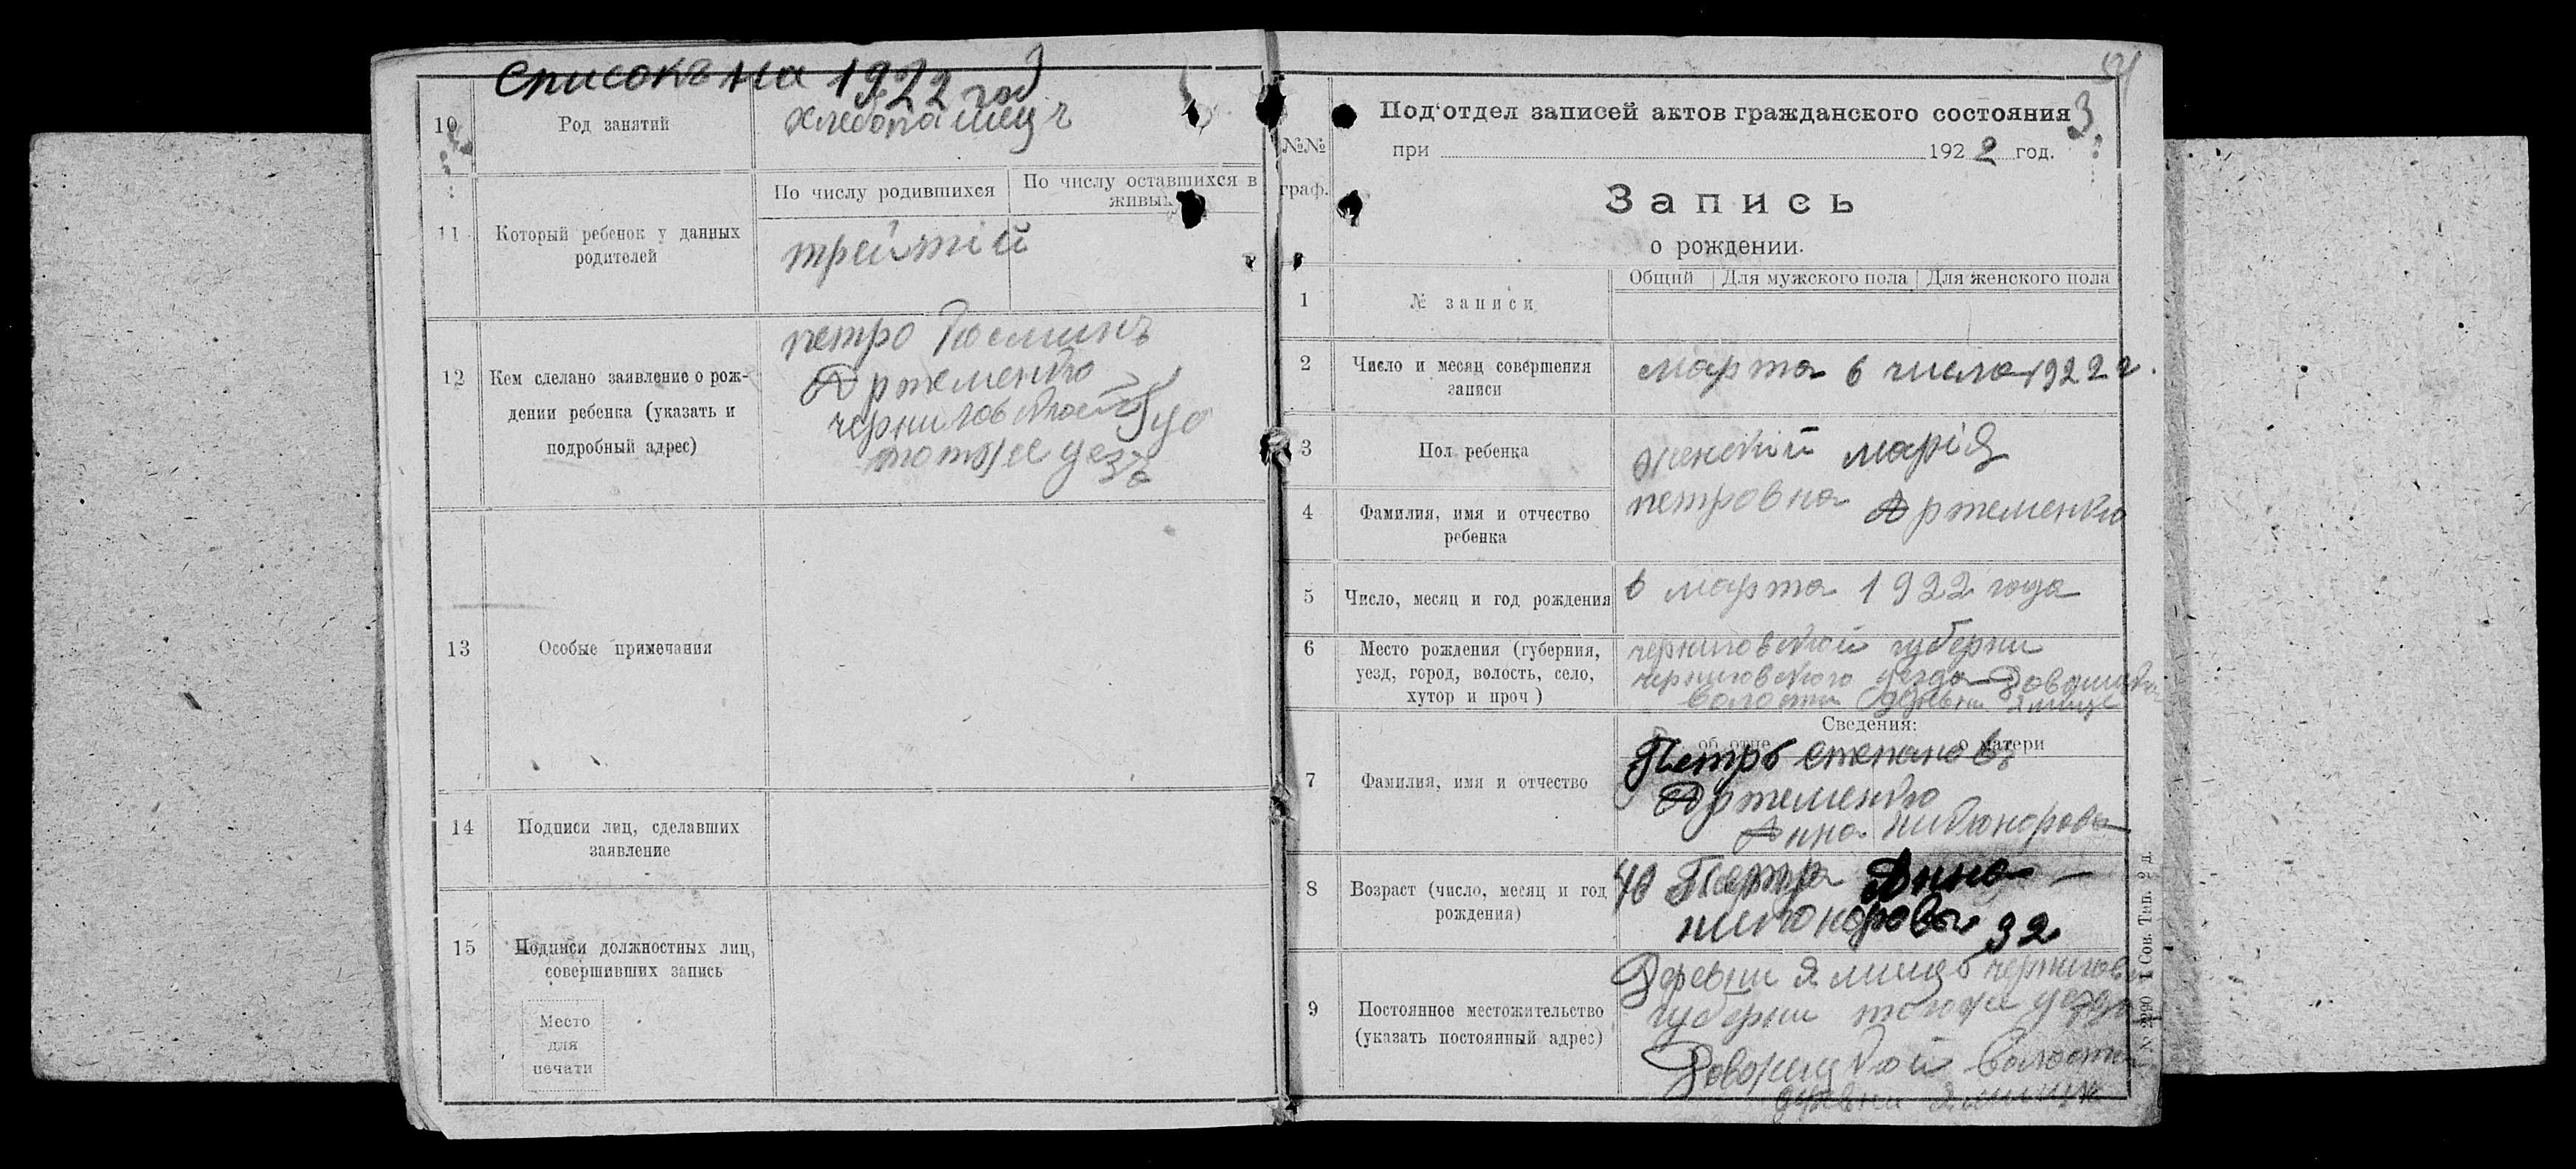 Списокъ на 1922 год
10
Род занятий
хлебопашец
11
Который ребенок у данных
родителей
По числу родившихся
По числу оставшихся в
живых
трейтій
12
Кем сделано заявление о рож-
дении ребенка (указать и
подробный адрес)
петро
Артеменко
черниговской губ
тотже уезд
13
Особые примечания
14
Подписи лиц, сделавших
заявление
15
Подписи должностных лиц,
совершивших запись
Место
для
печати
3
№№
граф.
Под'отдел записей актов гражданского состояния
при 1922 год.
Запись
о рождении.
1
№ записи
Общий
Для мужского пола
Для женского пола
2
Число и месяц совершения
записи
марта 6 числа 1922 г.
3
Пол ребенка
женский марія
4
Фамилия, имя и отчество
ребенка
петровна Артеменко
5
Число, месяц и год рождения
6 марта 1922 года
6
Место рождения (губерния,
уезд, город, волость, село,
хутор и проч)
черниговской губерни
черниговского уезда
волости деревни
Сведения:
об отце
о матери
7
Фамилия, имя и отчество
Петръ степановъ
Артеменко
Анна никонорова
8
Возраст (число, месяц и год
рождения)
40 Петра Анна
никонорова 32
9
Постоянное местожительство
(указать постоянный адрес)
Деревни Ямищъ чернигов
губерни тогоже уезда
волости
деревни
№ 2290 1 Сов. Тип. 2 д.